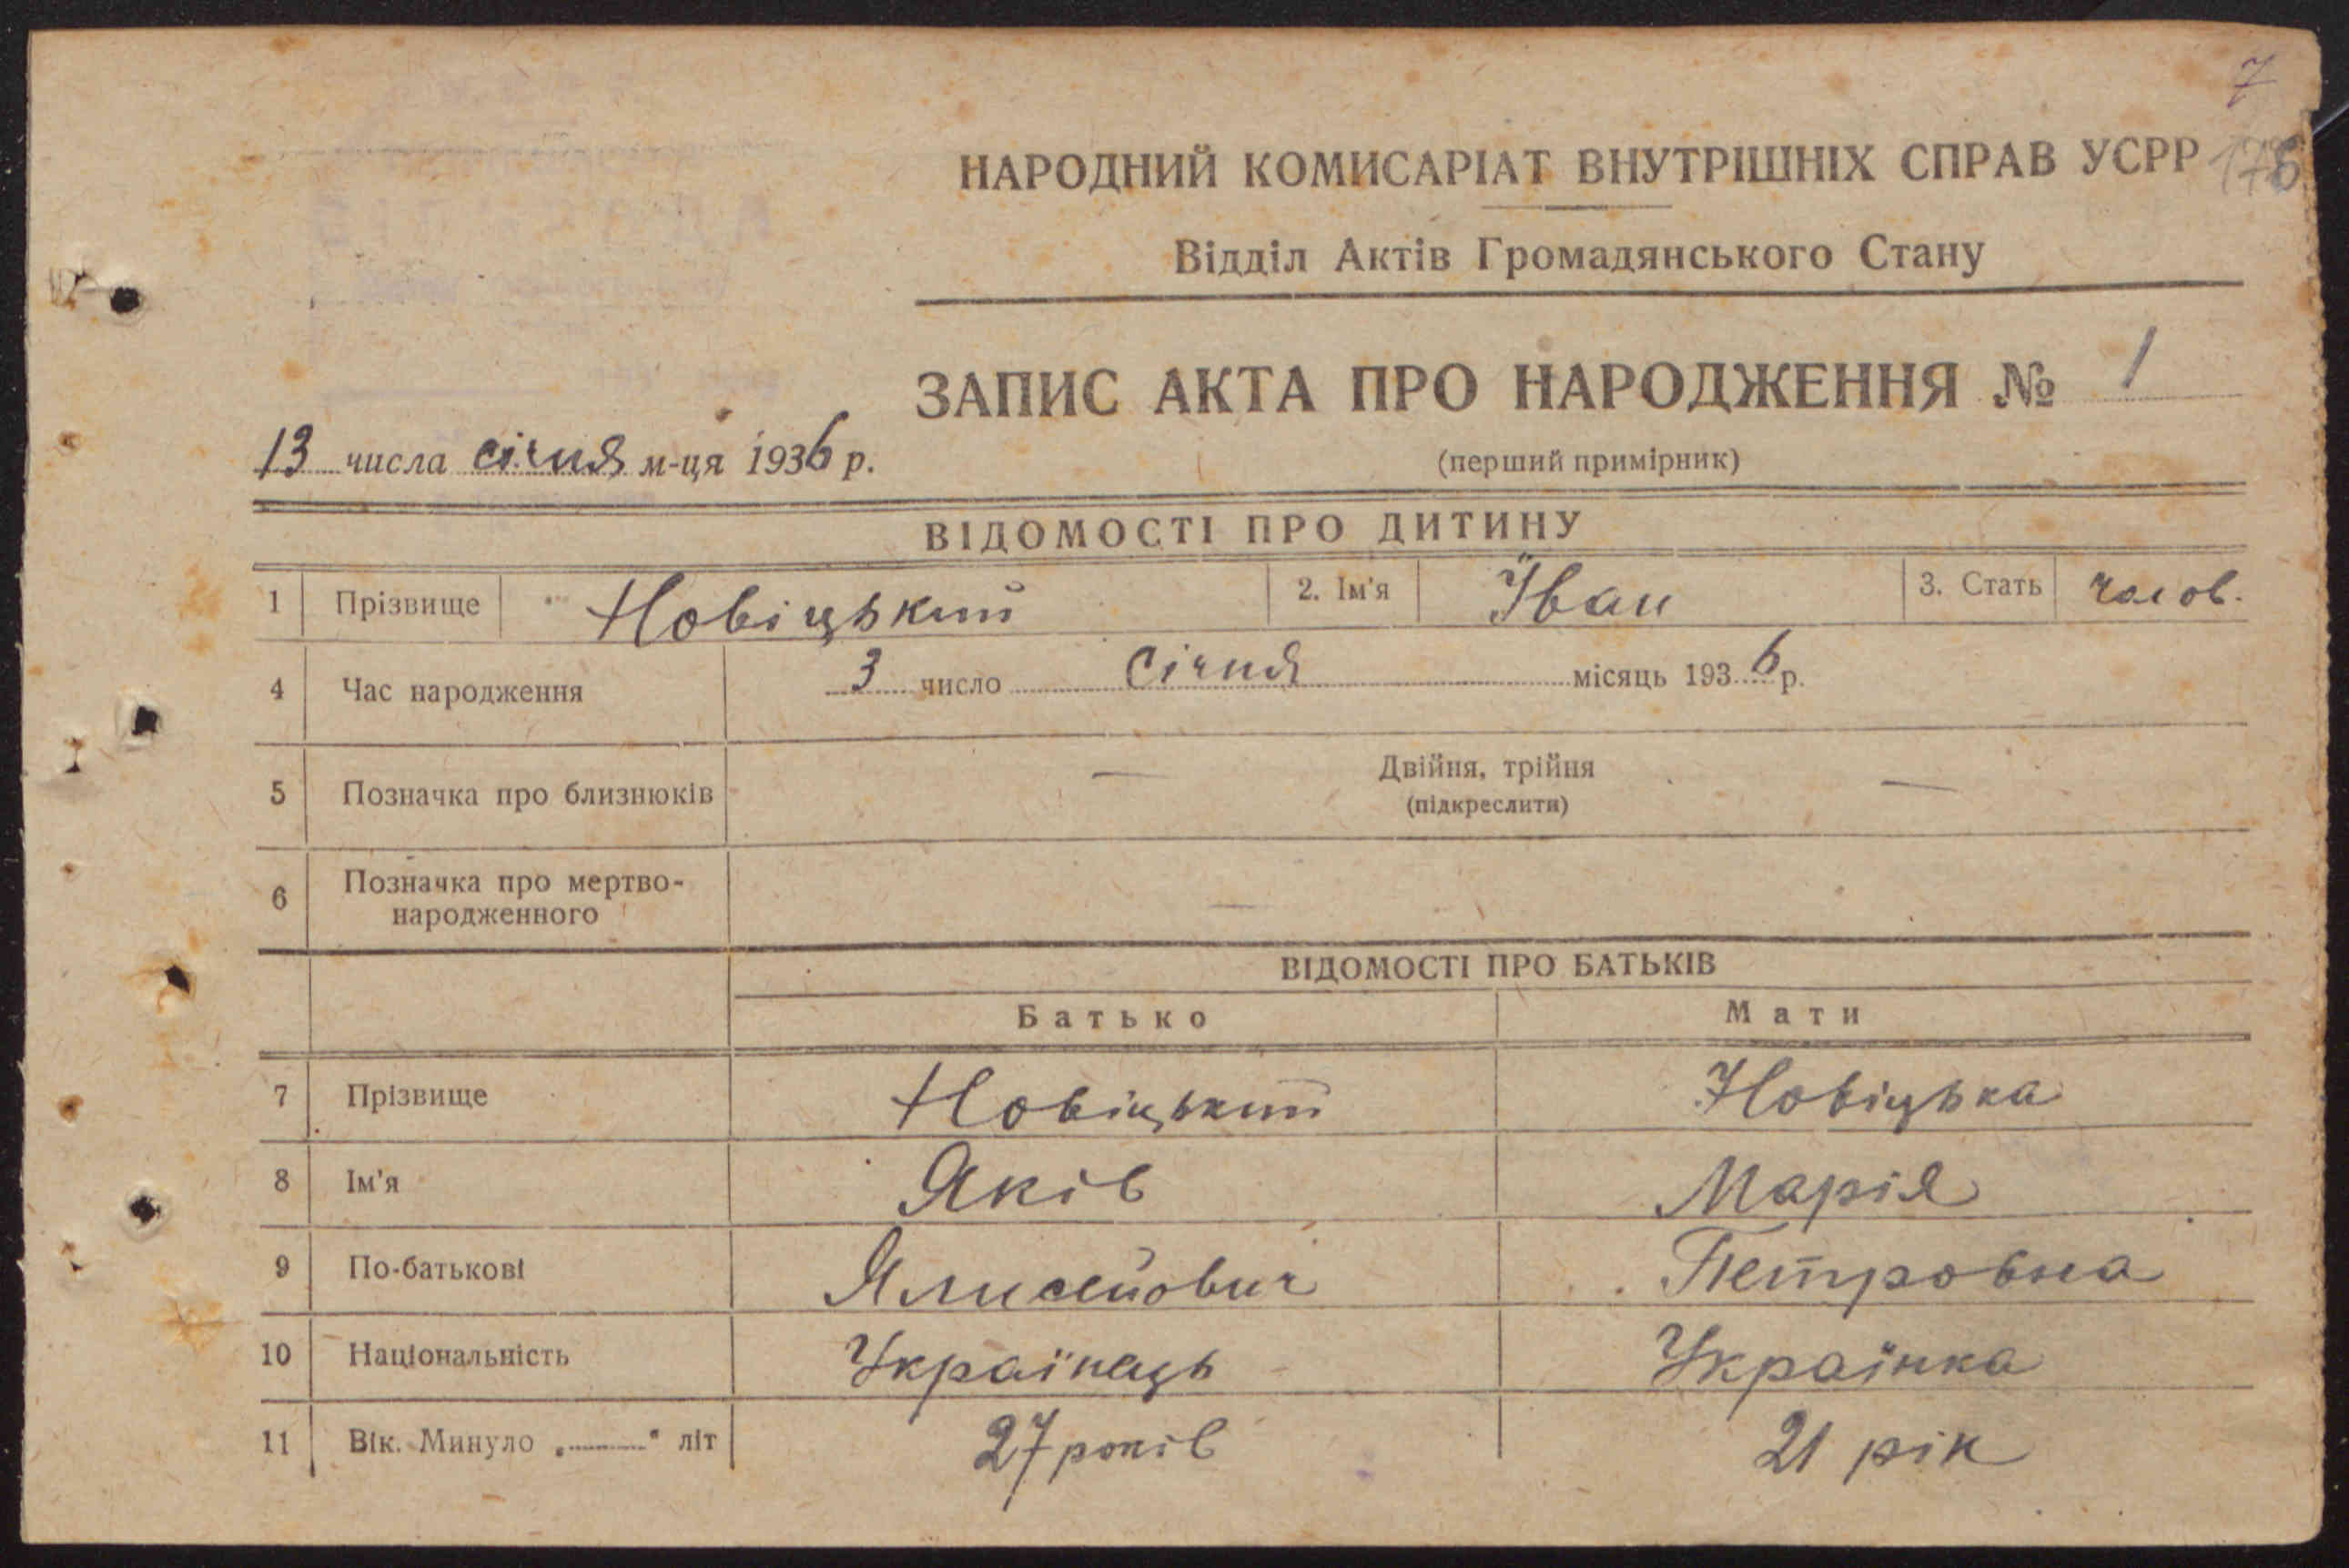 7
НАРОДНИЙ КОМИСАРІАТ ВНУТРІШНІХ СПРАВ УСРР
Відділ Актів Громадянського Стану
ЗАПИС АКТА ПРО НАРОДЖЕННЯ № 1
13 числа січня м-ця 1936 р.
(перший примірник)
ВІДОМОСТІ ПРО ДИТИНУ
1 Прізвище Новіцький 2. Ім'я Іван 3. Стать
4 Час народження 3 число Січня місяць 1936 р.
5 Позначка про близнюків — Двійня, трійня —
(підкреслити)
6 Позначка про мертво-
народженного —
ВІДОМОСТІ ПРО БАТЬКІВ
Батько Мати
7 Прізвище Новіцький Новіцька
8 Ім'я Яків Марія
9 По-батькові Ялисейович Петровна
10 Національність Українець Українка
11 Вік. Минуло „ " літ 27 років 21 рік